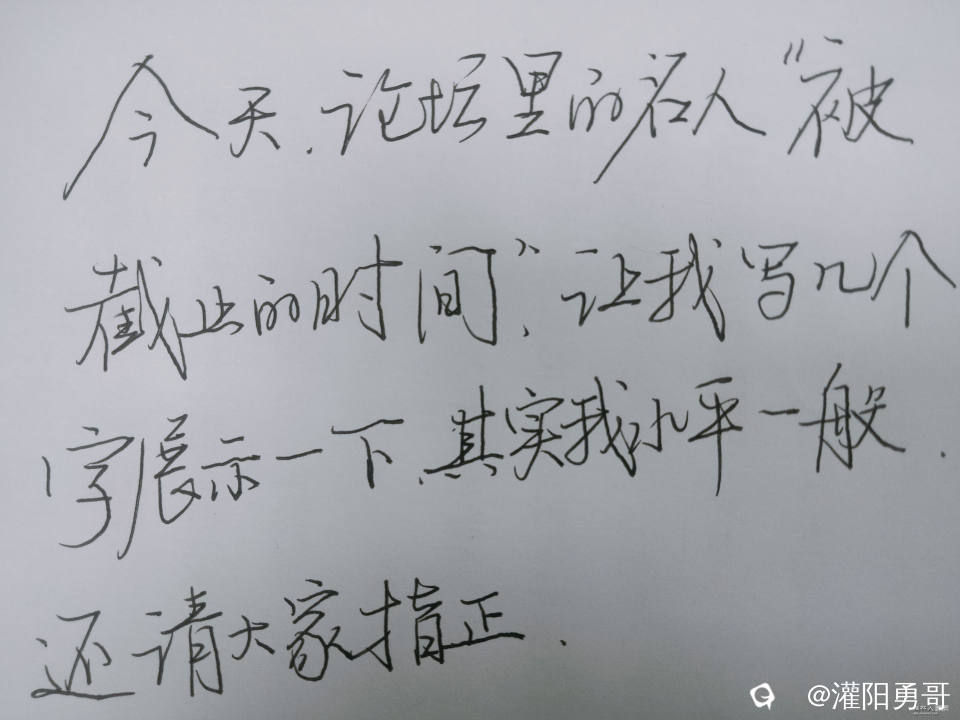 今天.论坛里的名人“被
截止的时间”,让我写几个
字展示一下.其实我水平一般.
还请大家指正.
@灌阳勇哥